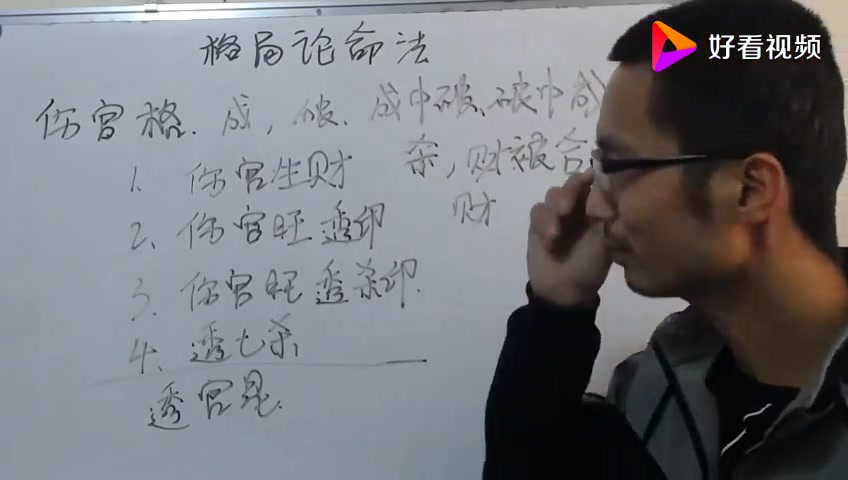 好看视频
格局论命法
伤官格、成，破、成中破、破中成
1、伤官生财 杀，财被合
2、伤官旺透印 财
3、伤官旺透杀印
4、透七杀
透官星